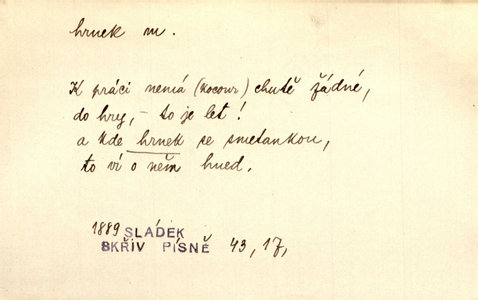 hrnek m.
K práci nemá (kocour) chutě žádné,
do hry, – to je let!
a kde hrnek se smetankou,
to ví o něm hned.
1889 SLÁDEK
SKŘIV PÍSNĚ 43, 17,